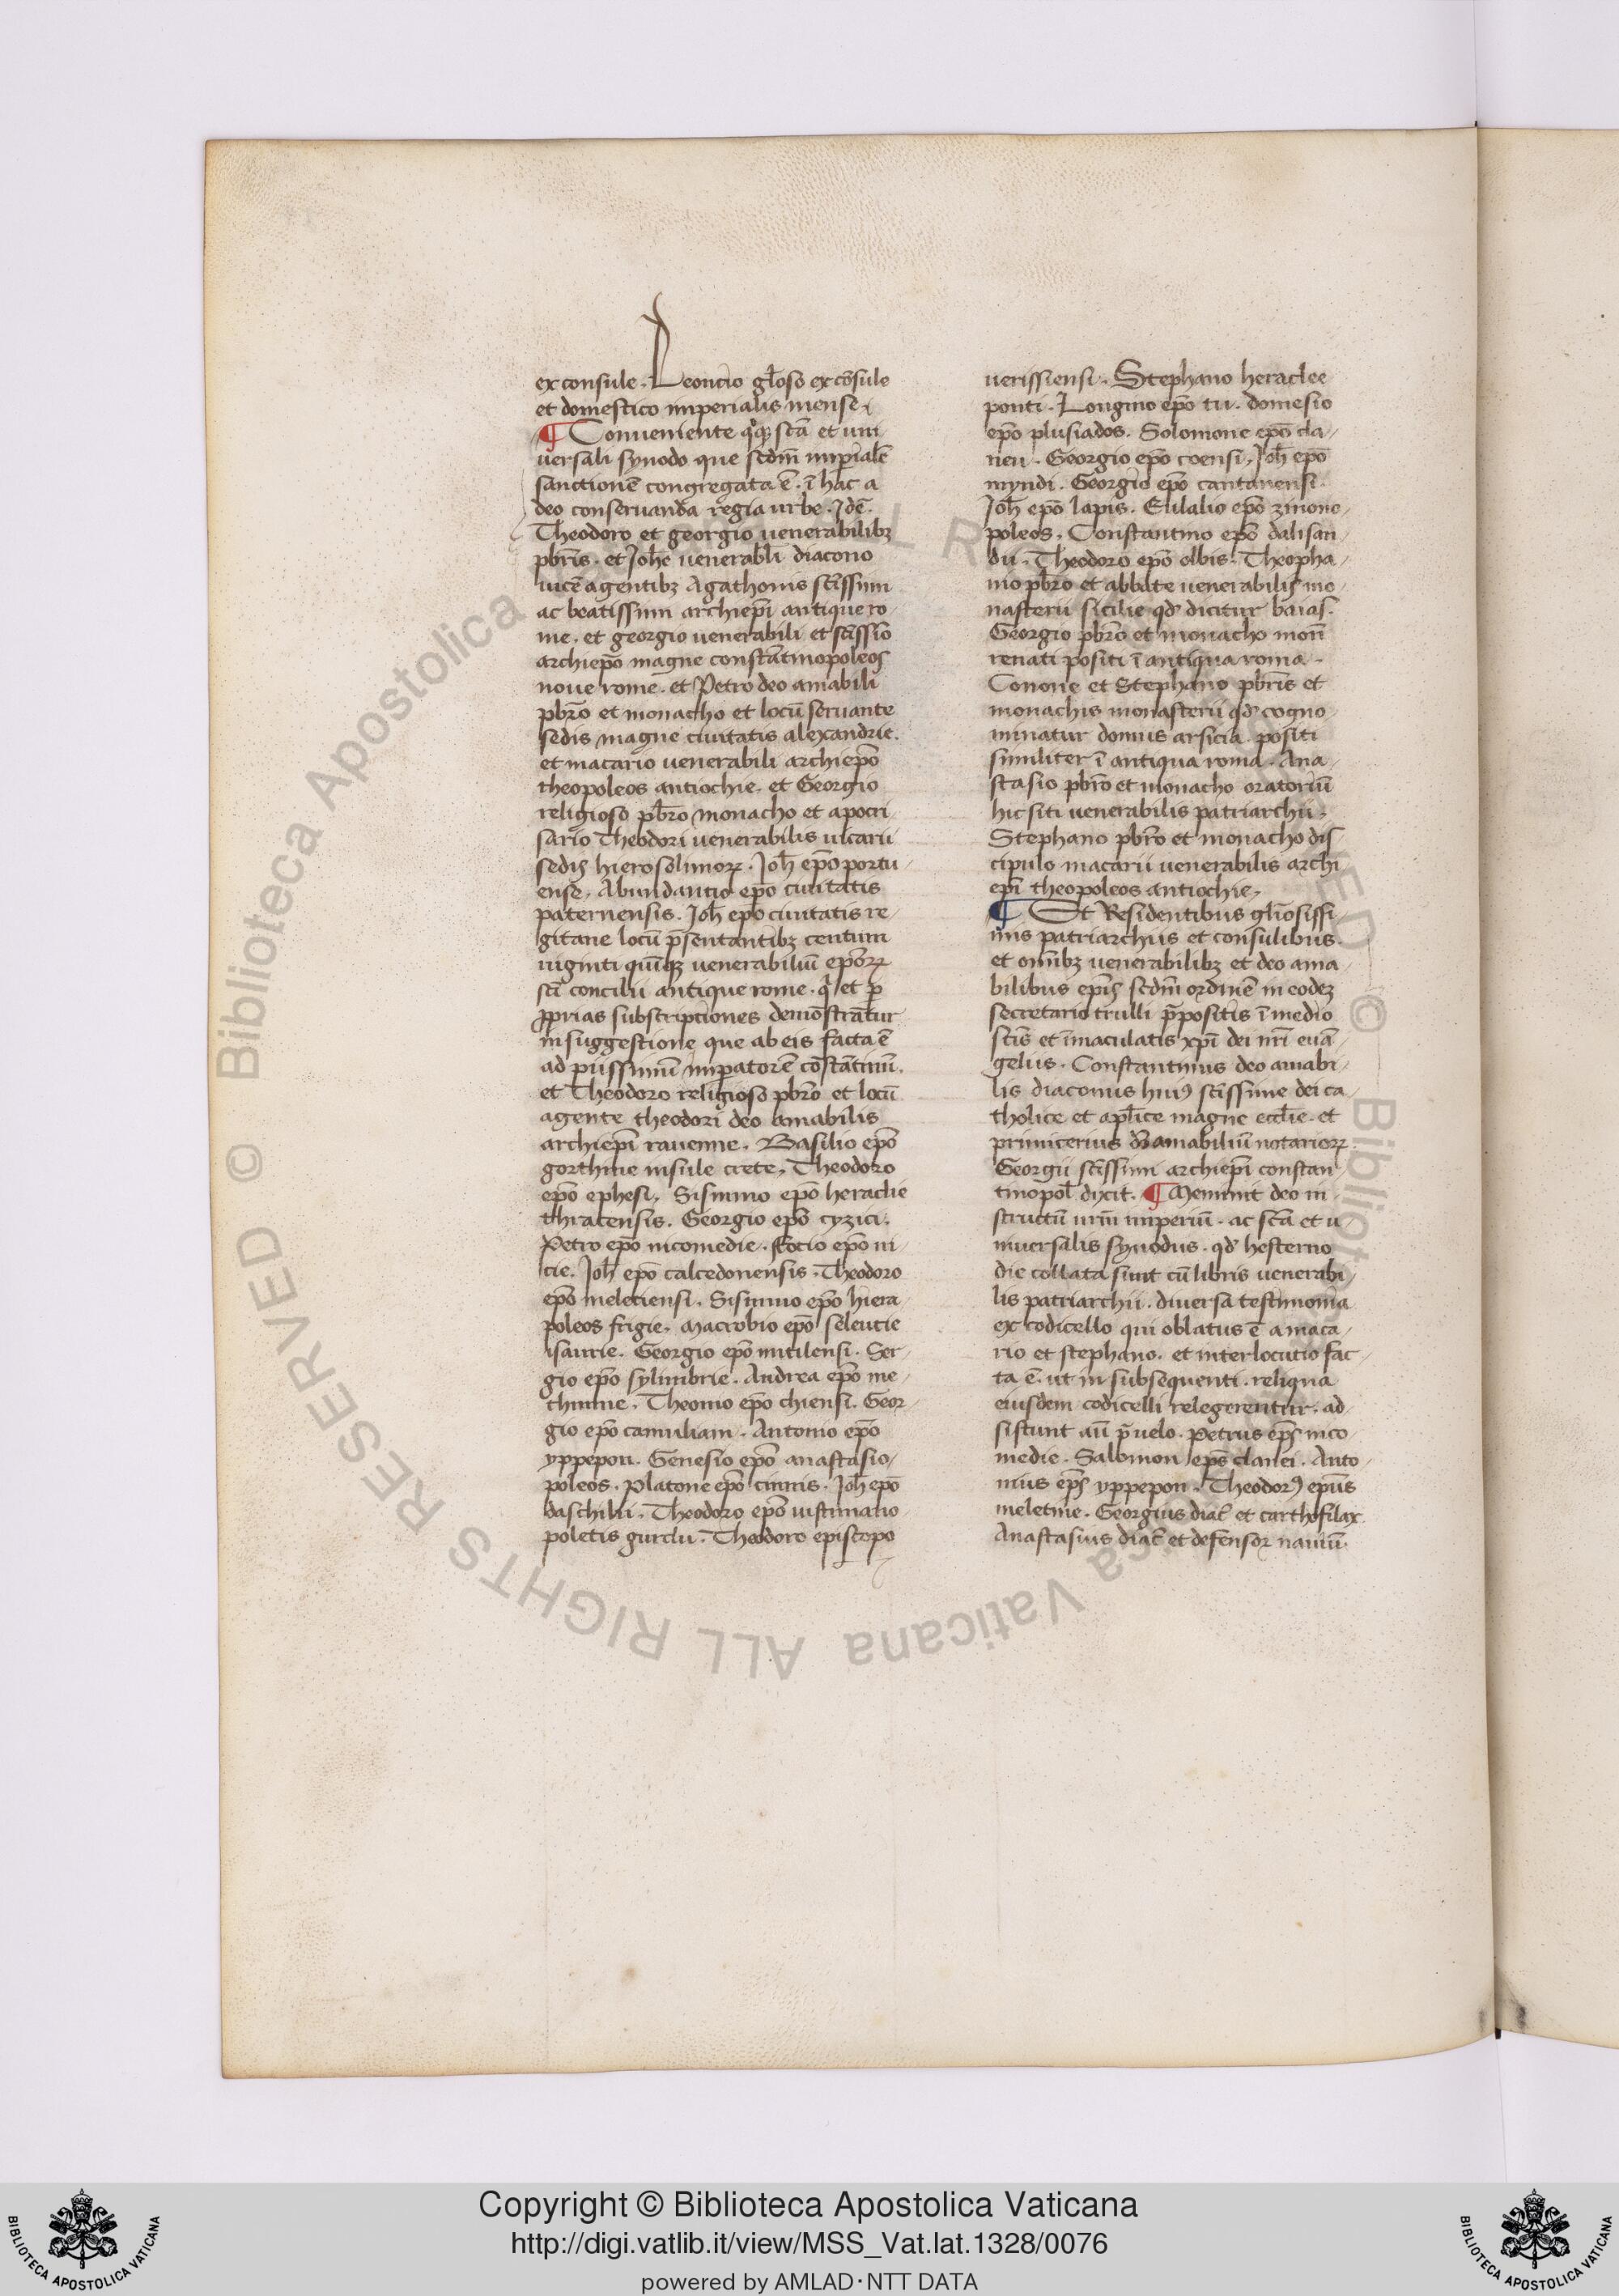 ex consule. Leoncio gl̃oso ex cõsule
et domestico imperialis mense.
¶ Conueniente q̊q̨ scã et uni
uersali synodo que scdm̃ imp̲ialẽ
sanctionẽ congregata ẽ. ĩ hac a
deo conseruanda regia urbe. Idẽ.
Theodoro et georgio uenerabilibꝫ
pbr̃is. et Joh̃e uenerabl̃i diacono
uicẽ agentibꝫ Agathonis sc̃issimi
ac beatissimi archiep̃i antique ro
me. et georgio uenerabili et sc̃issi͂o
archiep̃o magne constãtinopoleos
noue rome. et Petro deo amabili
pbr̃o et monacho et locũ seruante
sedis magne ciuitatis alexandrie.
et macario uenerabili archiep̃o
theopoleos antiochie. et Georgio
religioso pbr̃o monacho et apocri
sario Theodori uenerabilis uicarii
sedis hierosolimoꝝ. Joh̃ ep̃o portu-
ense. Abundantio ep̃o ciuitatis
paternensis. Joh̃ ep̃o ciuitatis re-
gitane locũ p̃sentantibꝫ centum
uiginti quĩqꝫ uenerabiliũ ep̃oꝝ
sc̃i concilii antique rome. q̇ et ꝑ
ꝓprias subscriptiones demõstrãtur
in suggestione que ab eis facta ẽ
ad piissimũ impatorẽ cõstãtinũ.
et Theodoro religioso pbr̃o et locũ
agente theodori deo amabilis
archiep̃i rauenne. Basilio ep̃o
gorthine insule crete. Theodoro
ep̃o ephesi. Sisinnio ep̃o heraclie
thracensis. Georgio ep̃o cyzici.
Petro ep̃o nicomedie. Focio ep̃o ni-
cie. Joh̃ ep̃o calcedonensis. Theodoro
ep̃o meletiensi. Sisinnio ep̃o hiera-
poleos frigie. Macrobio ep̃o seleucie
isaurie. Georgio ep̃o mitilensi. Ser-
gio ep̃o sylimbrie. Andrea ep̃o me-
thimne. Theonio ep̃o chiensi. Geor-
gio ep̃o camuliam. Antonio ep̃o
yppepon. Genesio ep̃o anastasio-
poleos. Platone ep̃o cinnis. Joh̃ ep̃o
daschilii. Theodoro ep̃o iustiniano
poletis gurdu. Theodoro episcopo
uerissiensi. Stephano heraclee
ponti. Longino ep̃o tii. domesio
ep̃o plusiados. Solomone ep̃o cla-
neu. Georgio ep̃o coensi. Joh̃ ep̃o
myndi. Georgio ep̃o cantanensi.
Joh̃ ep̃o lapis. Eulalio ep̃o zinono-
poleos. Constantino ep̃o dalisan-
du. Theodoro ep̃o olbis. Theopha-
nio pbr̃o et abbate uenerabilis mo-
nasterii sicilie qd̾ dicitur baias.
Georgio pbr̃o et monacho moñ
renati positi ĩ antiqua roma.
Conone et Stephano pbr̃is et
monachis monasterii qd̾ cogno-
minatur domus arsicia. positi
similiter ĩ antiqua roma. Ana-
stasio pbr̃o et monacho oratoriũ
hic siti uenerabilis patriarchii.
Stephano pbr̃o et monacho dis
cipulo macarii uenerabilis archi
ep̃i theopoleos antiochie.
¶ Et Residentibus gl̃iosissi
mis patriarchiis et consulibus.
et omĩbꝫ uenerabilibꝫ et deo ama-
bilibus ep̃is scdm̃ ordinẽ in eodeꝫ
secretario trulli p̃positis ĩ medio
sc̃is et ĩmaculatis xp̃i dei nr̃i euã-
geliis. Constantinus deo amabi-
lis diaconus huiꝰ sc̃issime dei ca-
tholice et apl̃ice magne eccl̃ie. et
primicerius dõ amabiliũ notarioꝝ.
Georgii sc̃issimi archiep̃i constan
tinopol̃ dixit. ¶ Meminit deo in-
structũ ur̃m imperiũ. ac scã et u-
niuersalis synodus. qd̾ hesterno
die collata sunt cũ libris uenerabi-
lis patriarchii. diuersa testimonia
ex codicello qui oblatus ẽ a maca-
rio et stephano. et interlocutio fac-
ta ẽ. ut in subsequenti. reliqua
eiusdem codicelli relegerentur. ad-
sistunt aũ p̃ uelo. Petrus ep̃s nico
medie. Salomon ep̃s clanei. Anto-
nius ep̃s yppepon. Theodorꝰ epũs
meletine. Georgius diac̃ et carthofilax.
Anastasius diac̃ et defensor nauiũ.
Copyright © Biblioteca Apostolica Vaticana
http://digi.vatlib.it/view/MSS_Vat.lat.1328/0076
powered by AMLAD·NTT DATA
BIBLIOTECA APOSTOLICA VATICANA
BIBLIOTECA APOSTOLICA VATICANA
© Biblioteca Apostolica Vaticana ALL RIGHTS RESERVED